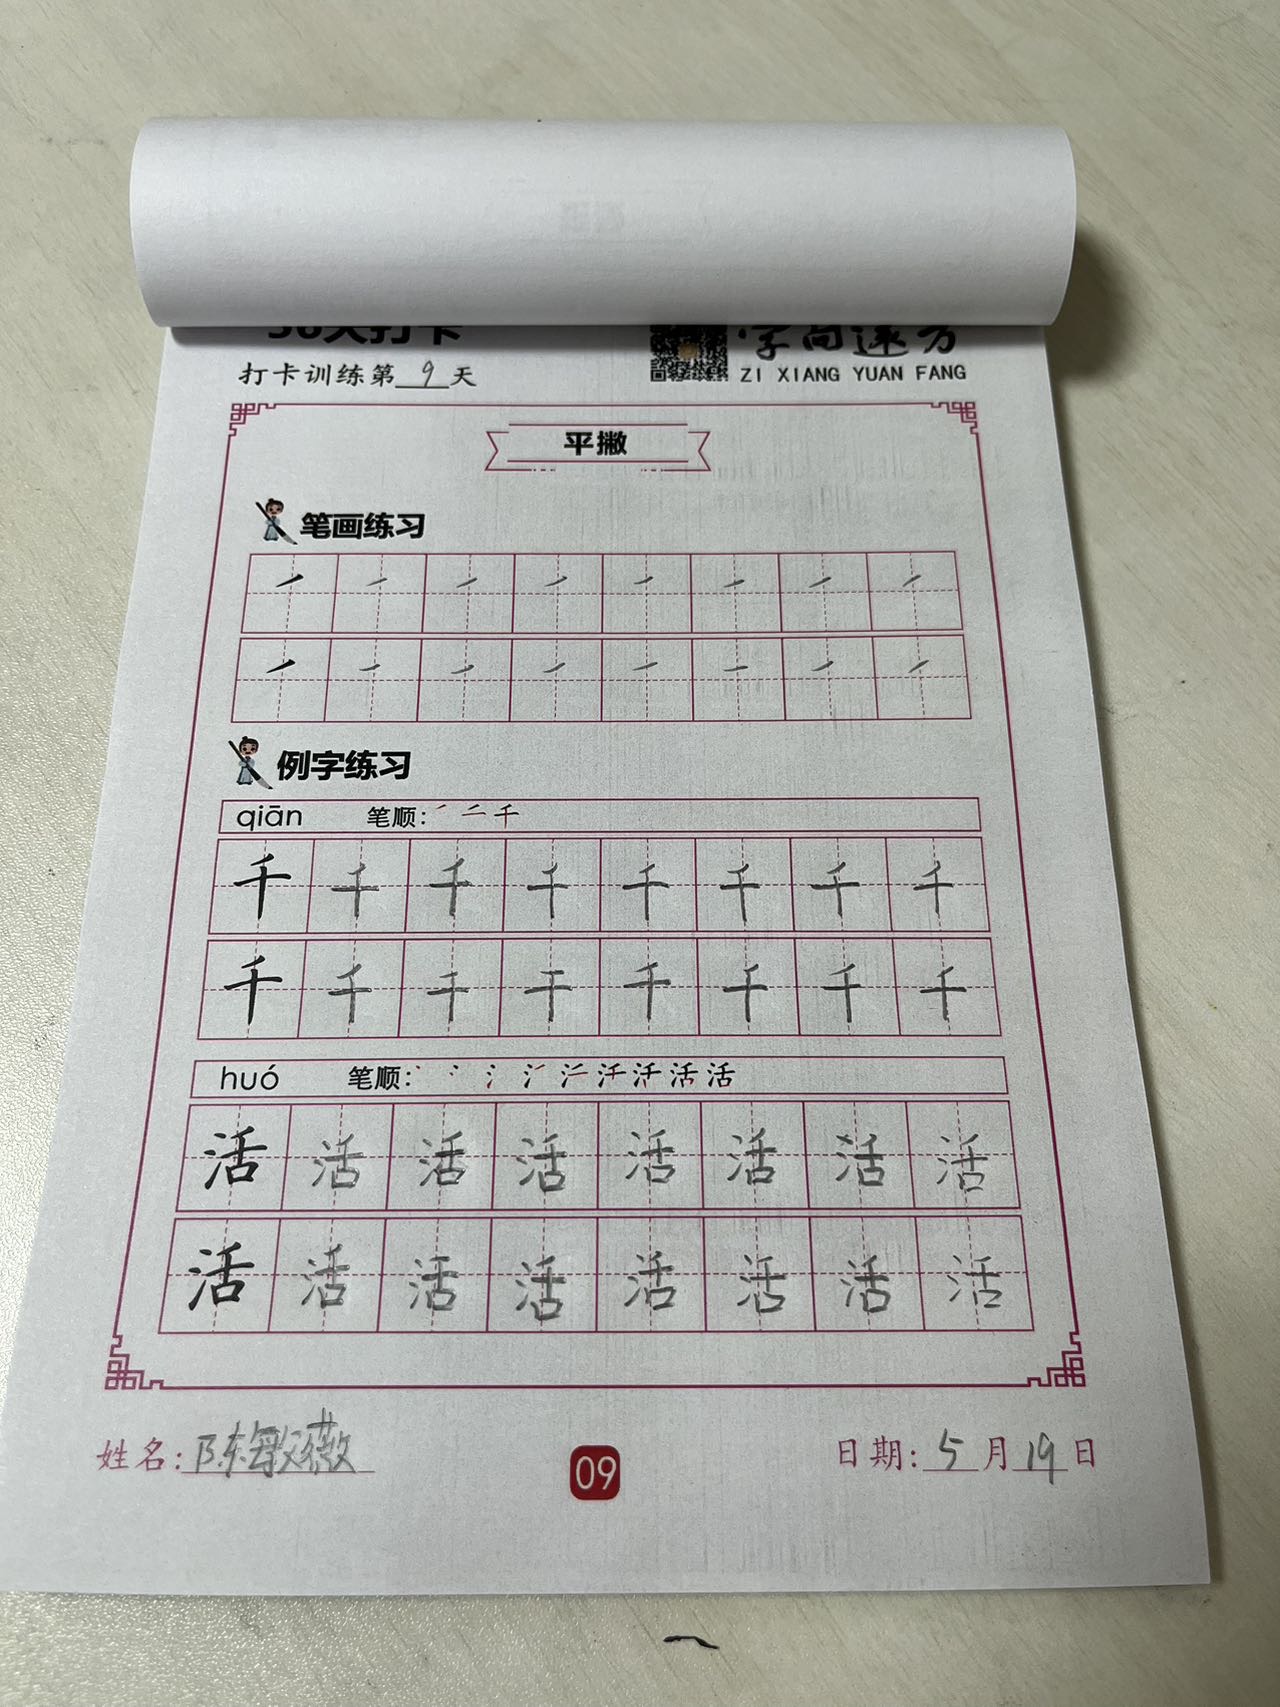 天打卡
字向速方
打卡训练第 9 天
ZI XIANG YUAN FANG
平撇
笔画练习
例字练习
qiān 笔顺: 千
千 千 千 千 千 千 千 千
千 千 千 千 千 千 千 千
huó 笔顺: 活 活
活 活 活 活 活 活 活 活
活 活 活 活 活 活 活 活
姓名: 陈敏薇
09
日期: 5 月 19 日